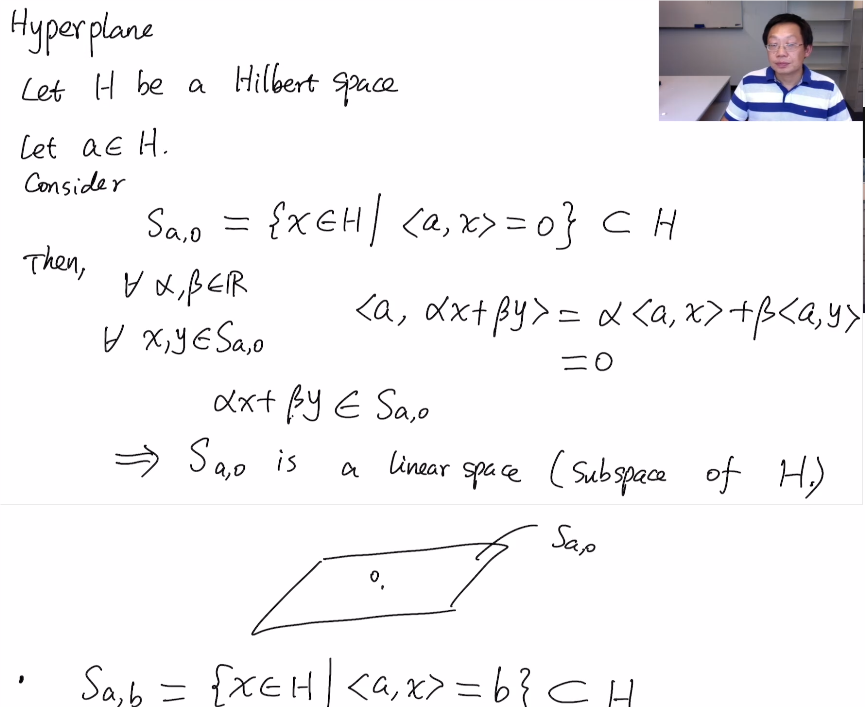 Hyperplane
Let H be a Hilbert space
Let a∈ H.
Consider
Sa,0 = {x∈H | <a,x> = 0} ⊂ H
Then,
∀ α,β∈ℝ
<a, αx+βy> = α<a,x>+β<a,y>
∀ x,y∈Sa,0
=0
αx+ βy ∈ Sa,0
⟹ Sa,0 is a linear space (subspace of H.)
Sa,0
0.
· Sa,b = {x∈H | <a,x> = b} ⊂ H